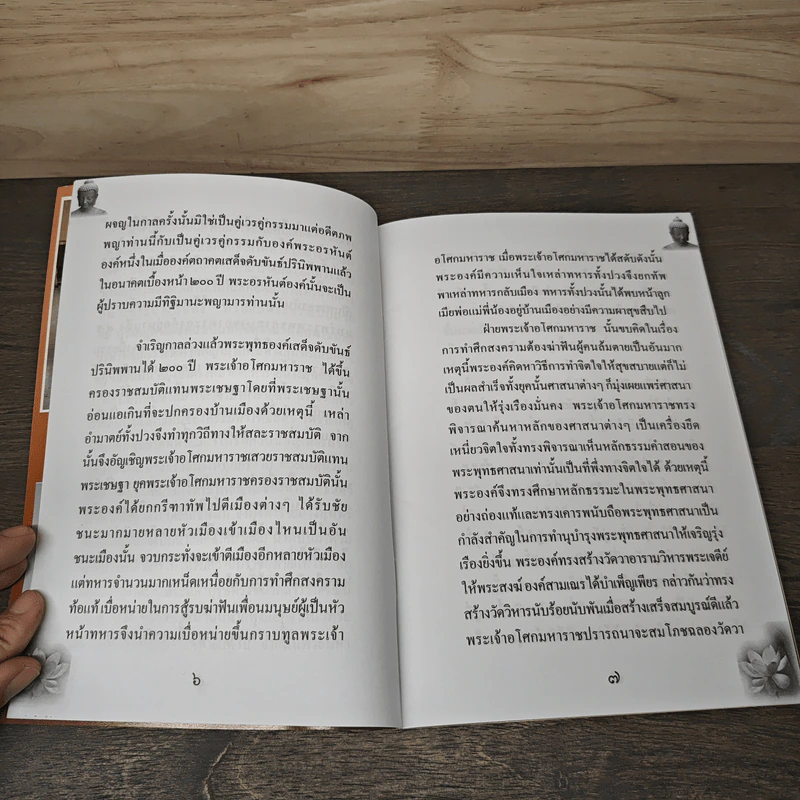 ผจญในกาลครั้งนั้นมิใช่เป็นคู่เวรคู่กรรมมาแต่อดีตภพ
พญาท่านนี้กับเป็นคู่เวรคู่กรรมกับองค์พระอรหันต์
องค์หนึ่งในเมื่อองค์ตถาคตเสด็จดับขันธ์ปรินิพพานแล้ว
ในอนาคตเบื้องหน้า ๒๐๐ ปี พระอรหันต์องค์นั้นจะเป็น
ผู้ปราบความมิทิฐิมานะพญามารท่านนั้น
จำเริญกาลล่วงแล้วพระพุทธองค์เสด็จดับขันธ์
ปรินิพพานได้ ๒๐๐ ปี พระเจ้าอโศกมหาราช ได้ขึ้น
ครองราชสมบัติแทนพระเชษฐาโดยที่พระเชษฐานั้น
อ่อนแอเกินที่จะปกครองบ้านเมืองด้วยเหตุนี้ เหล่า
อำมาตย์ทั้งปวงจึงทำทุกวิถีทางให้สละราชสมบัติ จาก
นั้นจึงอัญเชิญพระเจ้าอโศกมหาราชเสวยราชสมบัติแทน
พระเชษฐา ยุคพระเจ้าอโศกมหาราชครองราชสมบัตินั้น
พระองค์ได้ยกกรีฑาทัพไปตีเมืองต่างๆ ได้รับชัย
ชนะมากมายหลายหัวเมืองเข้าเมืองไหนเป็นอัน
ชนะเมืองนั้น จวบกระทั่งจะเข้าตีเมืองอีกหลายหัวเมือง
แต่ทหารจำนวนมากเหน็ดเหนื่อยกับการทำศึกสงคราม
ท้อแท้เบื่อหน่ายในการสู้รบฆ่าฟันเพื่อนมนุษย์ผู้เป็นหัว
หน้าทหารจึงนำความเบื่อหน่ายขึ้นกราบทูลพระเจ้า
๖
อโศกมหาราช เมื่อพระเจ้าอโศกมหาราชได้สดับดังนั้น
พระองค์มีความเห็นใจเหล่าทหารทั้งปวงจึงยกทัพ
พาเหล่าทหารกลับเมือง ทหารทั้งปวงนั้นได้พบหน้าลูก
เมียพ่อแม่พี่น้องอยู่บ้านเมืองอย่างมีความผาสุขสืบไป
ฝ่ายพระเจ้าอโศกมหาราช นั้นขบคิดในเรื่อง
การทำศึกสงครามต้องฆ่าฟันผู้คนล้มตายเป็นอันมาก
เหตุนี้พระองค์คิดหาวิธีการทำจิตใจให้สุขสบายแต่ก็ไม่
เป็นผลสำเร็จทั้งยุคนั้นศาสนาต่างๆ ก็มุ่งเผยแพร่ศาสนา
ของตนให้รุ่งเรืองมั่นคง พระเจ้าอโศกมหาราชทรง
พิจารณาค้นหาหลักของศาสนาต่างๆ เป็นเครื่องยึด
เหนี่ยวจิตใจทั้งทรงพิจารณาเห็นหลักธรรมคำสอนของ
พระพุทธศาสนาเท่านั้นเป็นที่พึ่งทางจิตใจได้ ด้วยเหตุนี้
พระองค์จึงทรงศึกษาหลักธรรมะในพระพุทธศาสนา
อย่างถ่องแท้และทรงเคารพนับถือพระพุทธศาสนาเป็น
กำลังสำคัญในการทำนุบำรุงพระพุทธศาสนาให้เจริญรุ่ง
เรืองยิ่งขึ้น พระองค์ทรงสร้างวัดวาอารามวิหารพระเจดีย์
ให้พระสงฆ์ องค์สามเณรได้บำเพ็ญเพียร กล่าวกันว่าทรง
สร้างวัดวิหารนับร้อยนับพันเมื่อสร้างเสร็จสมบูรณ์ดีแล้ว
พระเจ้าอโศกมหาราชปรารถนาจะสมโภชฉลองวัดวา
๗